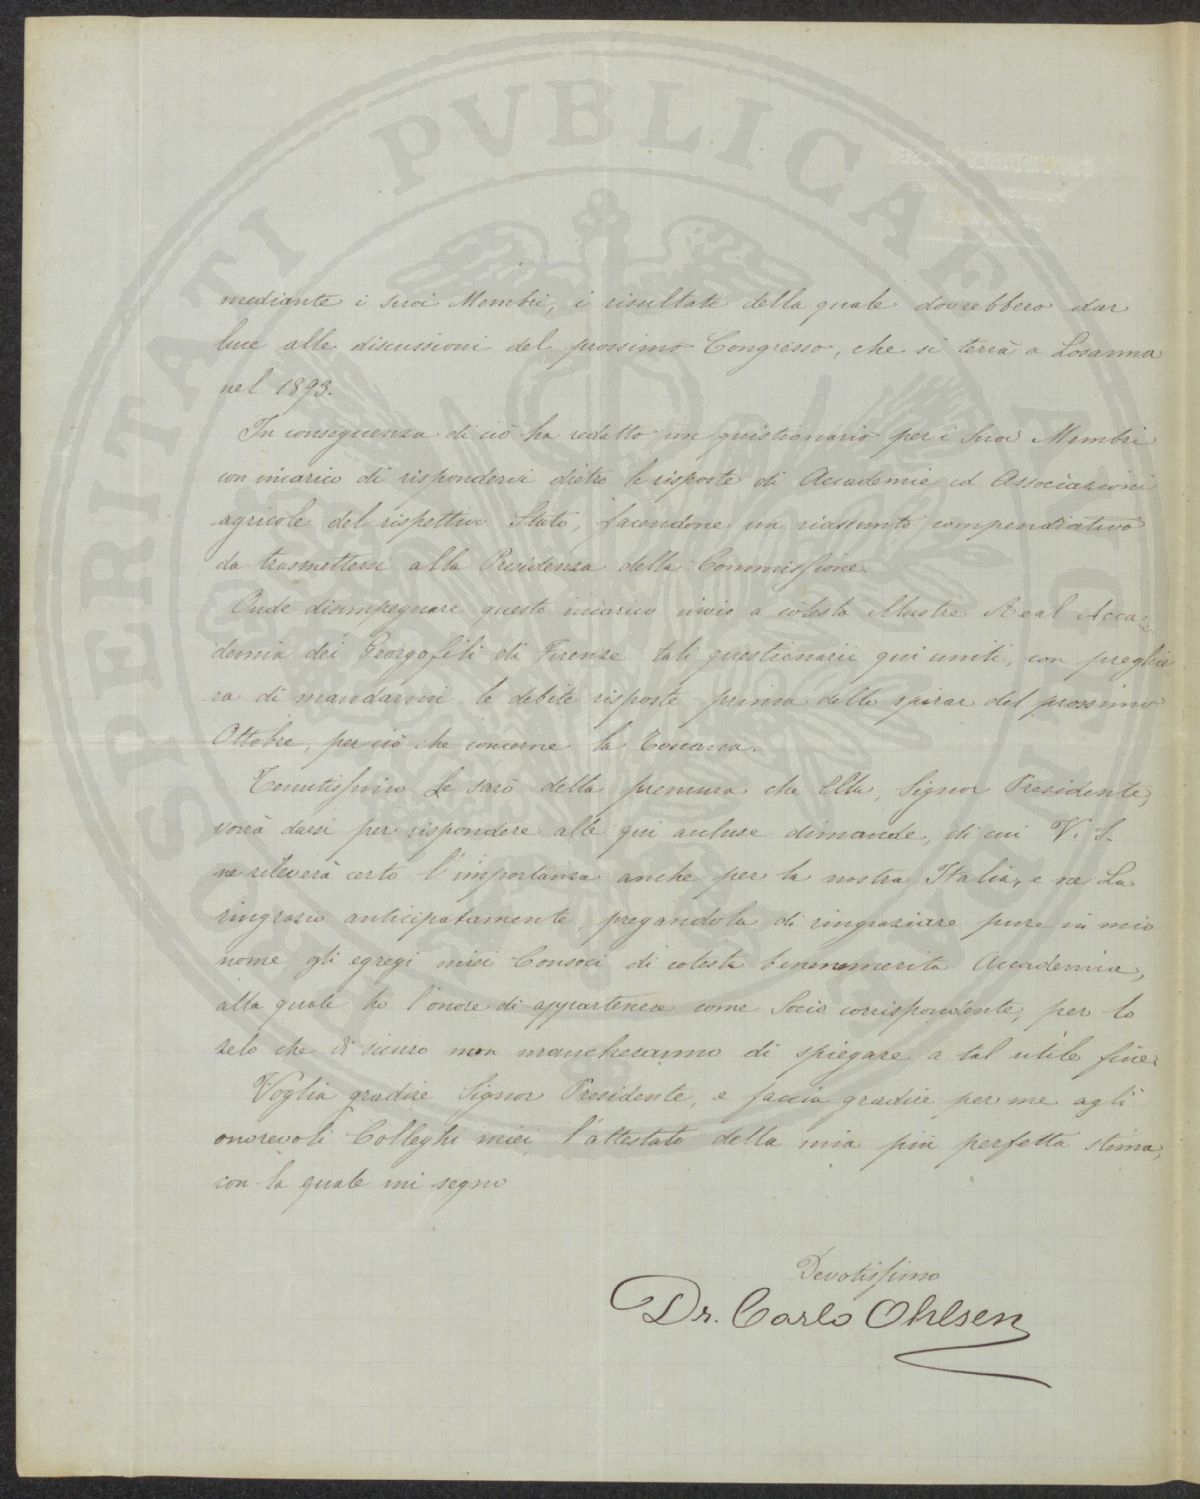 PROSPERITATI PVBLICAE AVGENDAE
mediante i suoi Membri, i risultati della quale dovrebbero dar
luce alle discussioni del prossimo Congresso, che si terrà a Losanna
nel 1893.
In conseguenza di ciò ha redatto un quistionario per i suoi Membri
con incarico di rispondervi dietro le risposte di Accademie ed Associazioni
agricole del rispettivo Stato, facendone un riassunto compendiativo
da trasmettersi alla Presidenza della Commissione.
Onde disimpegnare questo incarico invio a cotesta Illustre Real Acca-
demia dei Georgofili di Firenze tali questionarii qui uniti, con preghie-
ra di mandarmi le debite risposte prima dello spirar del prossimo
Ottobre, per ciò che concerne la Toscana.
Tenutissimo Le sarò della premura che Ella, Signor Presidente,
vorrà darsi per rispondere alle qui accluse dimande, di cui V. S.
ne rileverà certo l'importanza anche per la nostra Italia, e ne La
ringrazio anticipatamente, pregandola di ringraziare pure in mio
nome gli egregi miei Consoci di cotesta benenemerita Accademia,
alla quale ho l'onore di appartenere come Socio corrispondente, per lo
zelo che di sicuro non mancheranno di spiegare a tal utile fine.
Voglia gradire Signor Presidente, e faccia gradire per me agli
onorevoli Colleghi miei, l'attestato della mia più perfetta stima,
con la quale mi segno
Devotissimo
Dr. Carlo Ohlsen